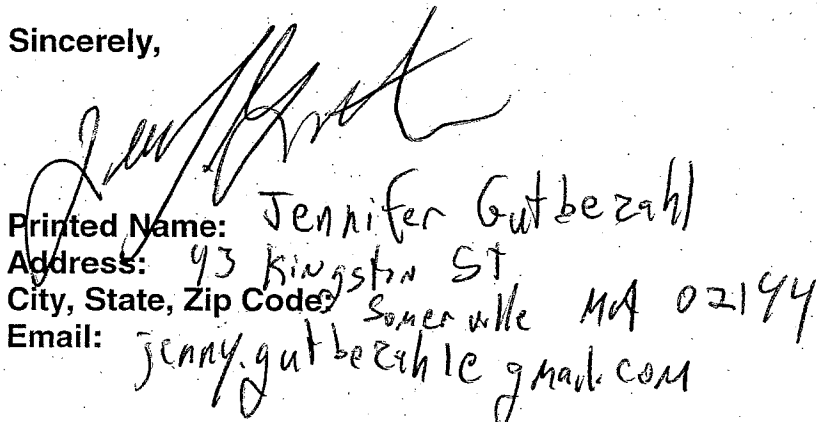 Sincerely,
Printed Name: Jennifer Gutbezahl
Address: 43 Kingston ST
City, State, Zip Code: Somerville MA 02144
Email: jenny.gutbezahl@gmail.com